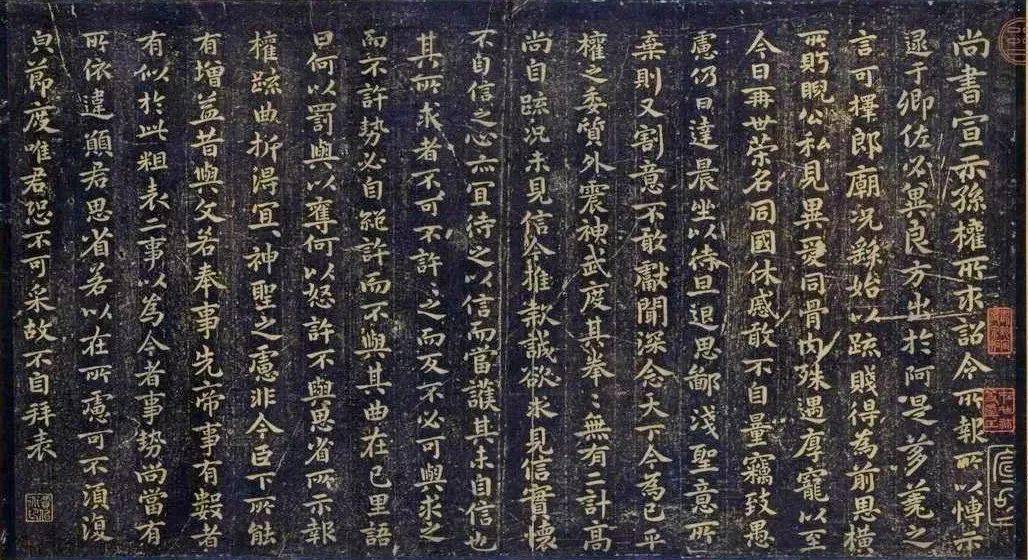 尚書宣示孫權所求詔令所報所以慱示
逮于卿佐必冀良方出於阿是芻蕘之
言可擇郎廟況繇始以疏賤得為前恩橫
所眄睨公私見異愛同骨肉殊遇厚寵以至
今日再世榮名同國休慼敢不自量竊致愚
慮仍日達晨坐以待旦退思鄙淺聖意所
棄則又割意不敢獻聞深念天下今為已平
權之委質外震神武度其拳〻無有二計高
尚自疏況未見信今推款誠欲求見信實懷
不自信之心亦宜待之以信而當護其未自信也
其所求者不可不許〻之而反不必可與求之
而不許勢必自絕許而不與其曲在己里語
曰何以罰與以奪何以怒許不與思省所示報
權疏曲折得宜神聖之慮非今臣下所能
有增益昔與文若奉事先帝事有數者
有似於此粗表二事以為今者事勢尚當有
所依違願君思省若以在所慮可不須復
貞節度唯君恐不可采故不自拜表